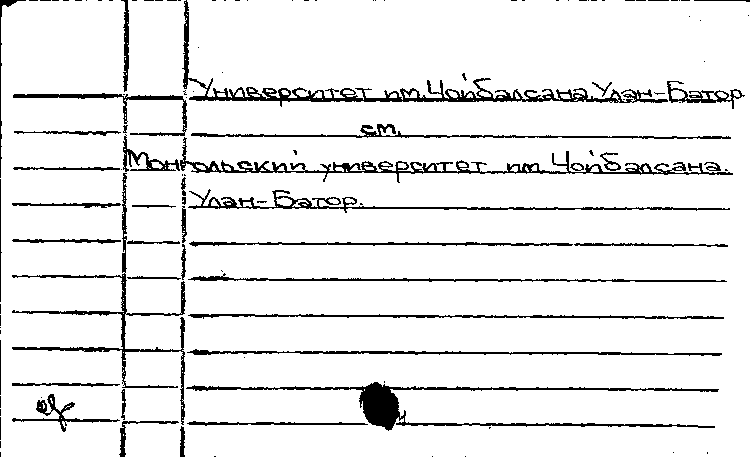 Университет им. Чойбалсана. Улан-Батор
см.
Монгольский университет им. Чойбалсана.
Улан-Батор.